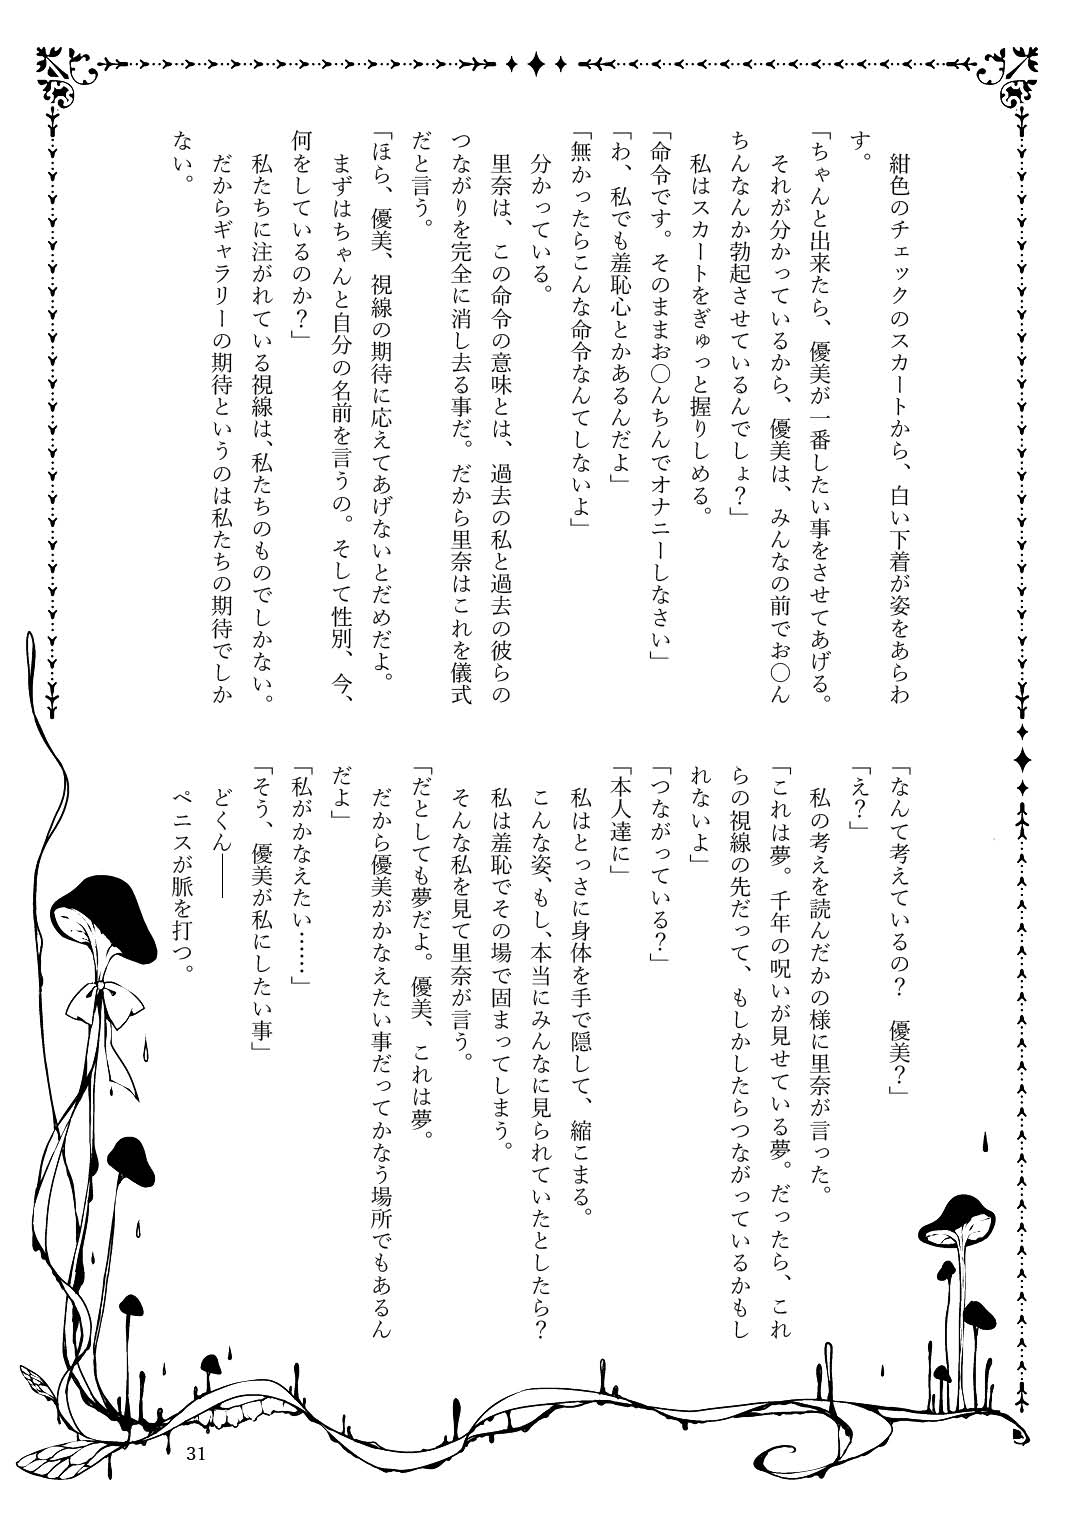 紺色のチェックのスカートから、白い下着が姿をあらわ
す。
「ちゃんと出来たら、優美が一番したい事をさせてあげる。
それが分かっているから、優美は、みんなの前でお〇ん
ちんなんか勃起させているんでしょ？」
私はスカートをぎゅっと握りしめる。
「命令です。そのままお〇んちんでオナニーしなさい」
「わ、私でも羞恥心とかあるんだよ」
「無かったらこんな命令なんてしないよ」
分かっている。
里奈は、この命令の意味とは、過去の私と過去の彼らの
つながりを完全に消し去る事だ。だから里奈はこれを儀式
だと言う。
「ほら、優美、視線の期待に応えてあげないとだめだよ。
まずはちゃんと自分の名前を言うの。そして性別、今、
何をしているのか？」
私たちに注がれている視線は、私たちのものでしかない。
だからギャラリーの期待というのは私たちの期待でしか
ない。
「なんて考えているの？　優美？」
「え？」
私の考えを読んだかの様に里奈が言った。
「これは夢。千年の呪いが見せている夢。だったら、これ
らの視線の先だって、もしかしたらつながっているかもし
れないよ」
「つながっている？」
「本人達に」
私はとっさに身体を手で隠して、縮こまる。
こんな姿、もし、本当にみんなに見られていたとしたら？
私は羞恥でその場で固まってしまう。
そんな私を見て里奈が言う。
「だとしても夢だよ。優美、これは夢。
だから優美がかなえたい事だってかなう場所でもあるん
だよ」
「私がかなえたい……」
「そう、優美が私にしたい事」
どくん――
ペニスが脈を打つ。
31